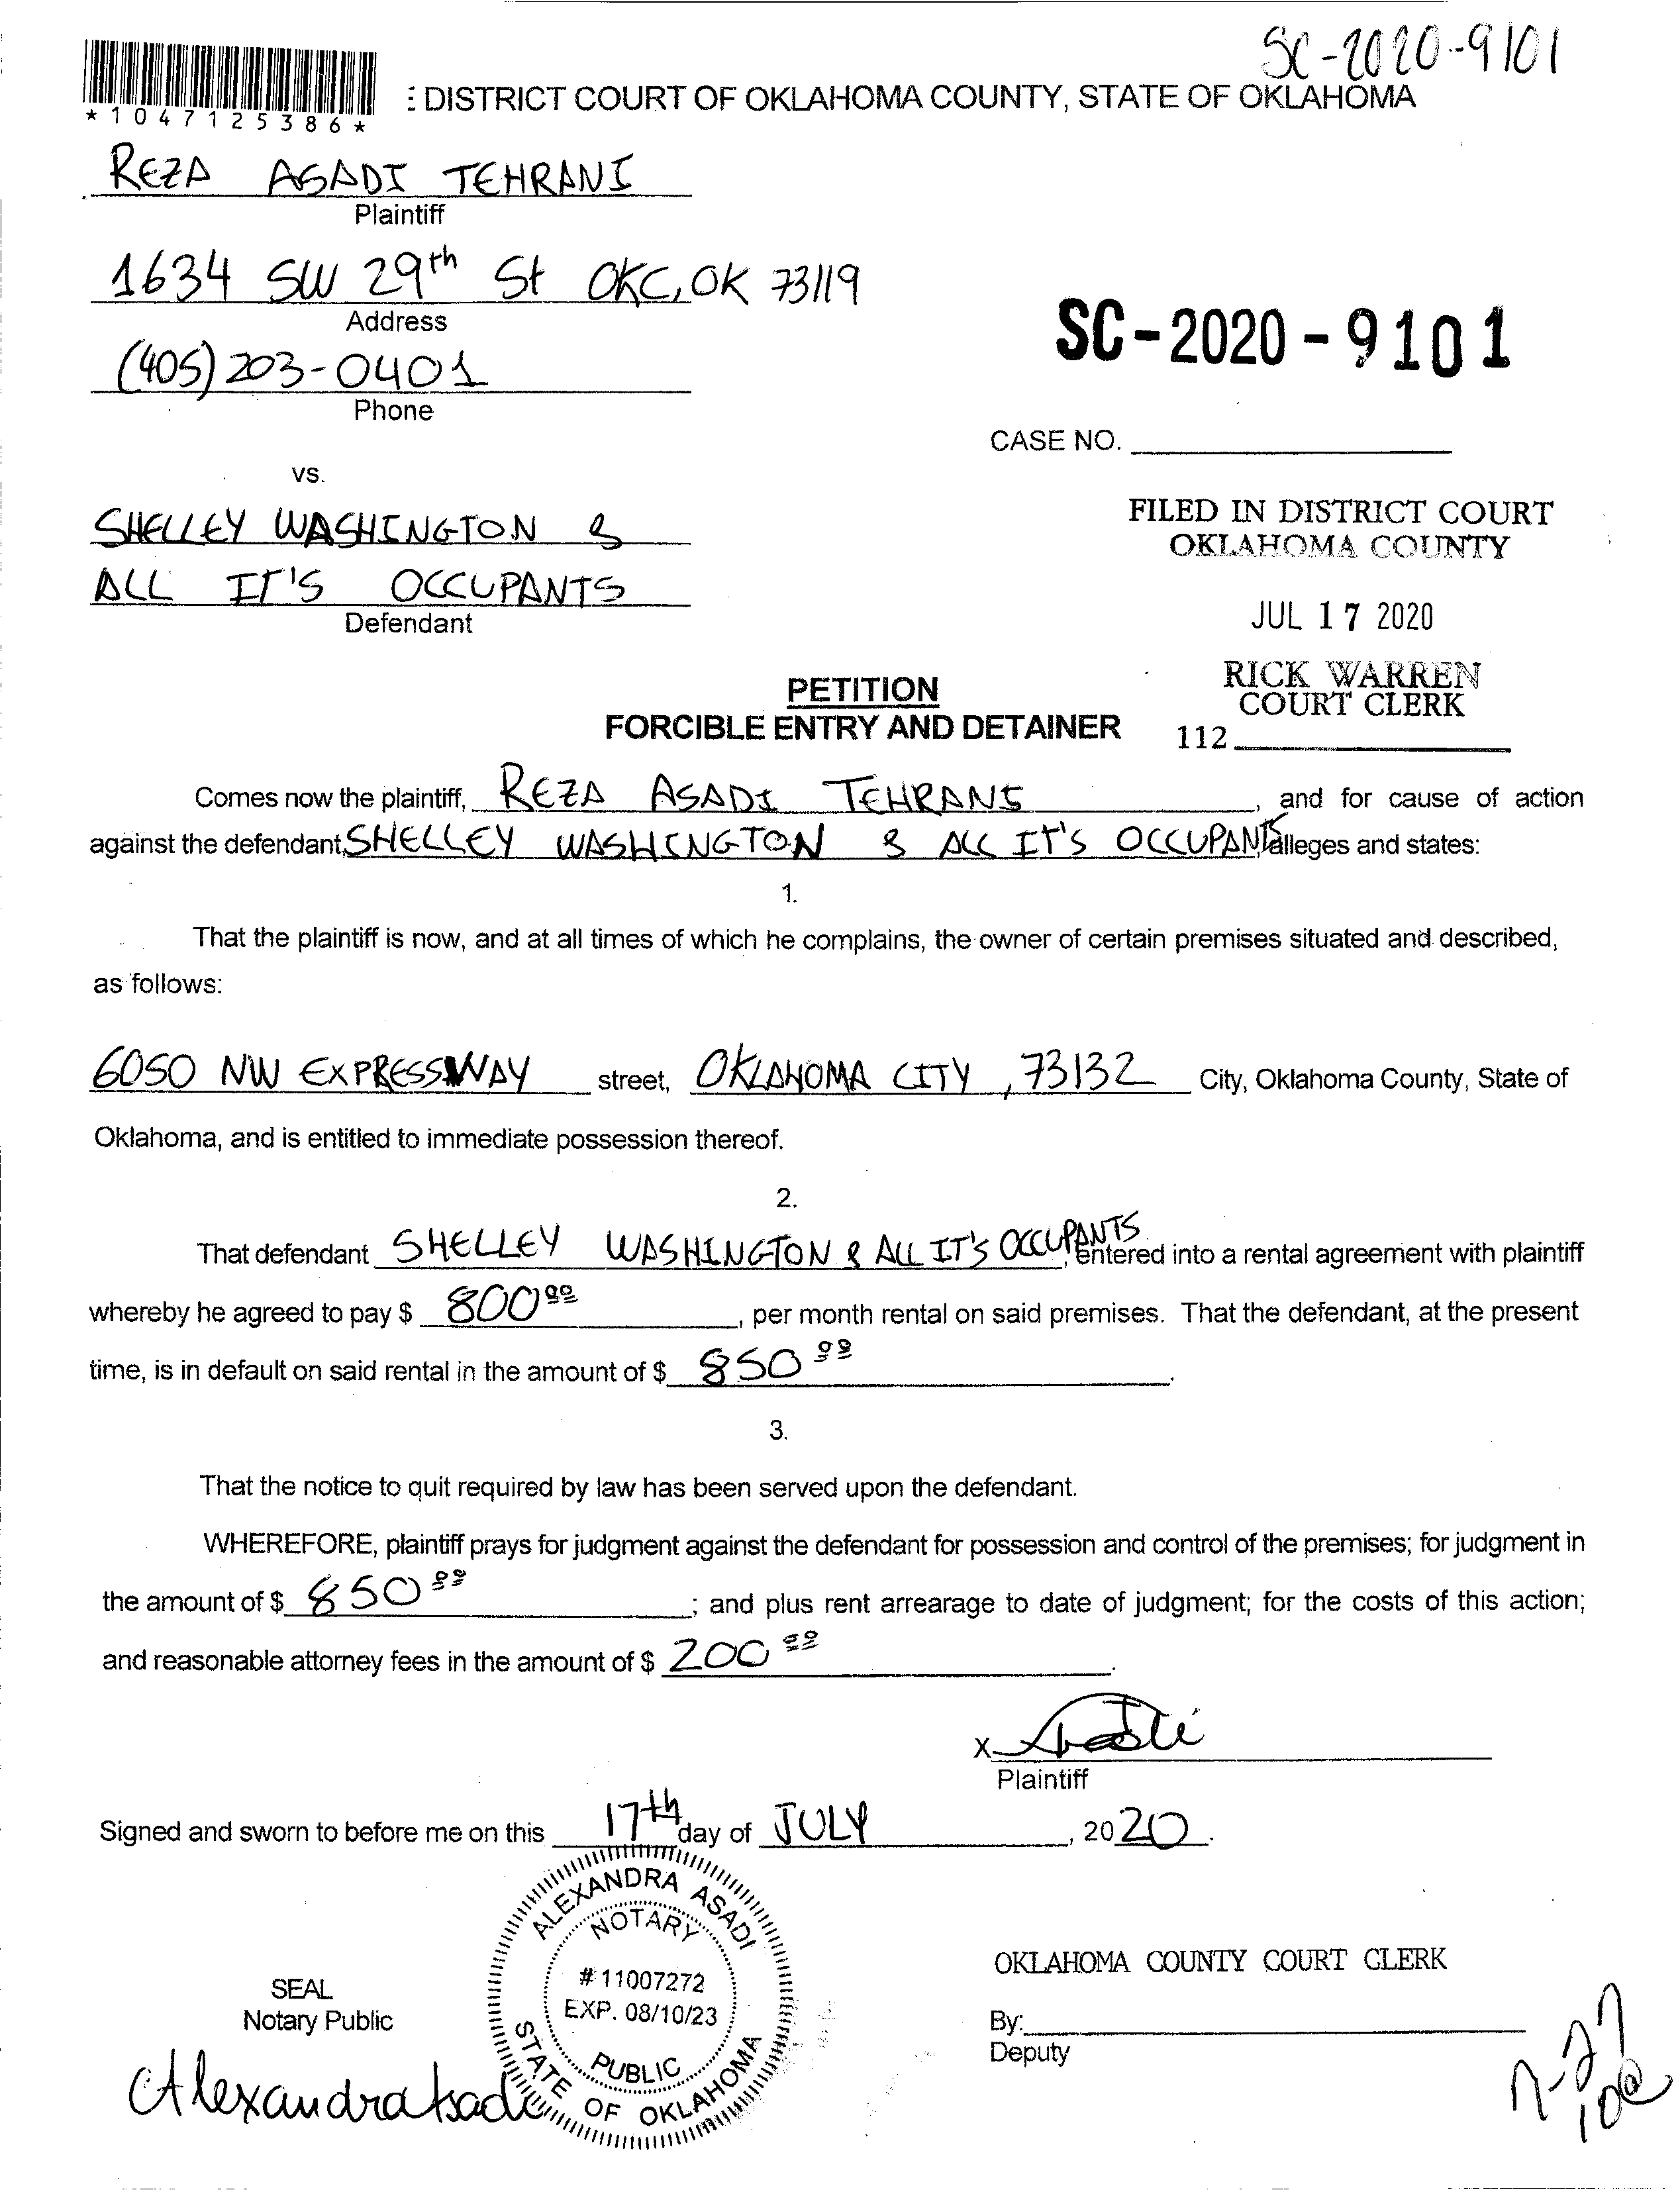 SC-2020-9101
*1047125386*
: DISTRICT COURT OF OKLAHOMA COUNTY, STATE OF OKLAHOMA
REZA ASADI TEHRANI
Plaintiff
1634 SW 29th St OKC, OK 73119
Address
(405) 203-0401
Phone
SC-2020-9101
CASE NO.
vs.
SHELLEY WASHINGTON &
ALL IT'S OCCUPANTS
Defendant
FILED IN DISTRICT COURT
OKLAHOMA COUNTY
JUL 17 2020
RICK WARREN
COURT CLERK
112
PETITION
FORCIBLE ENTRY AND DETAINER
Comes now the plaintiff, REZA ASADI TEHRANI, and for cause of action
against the defendant, SHELLEY WASHINGTON & ALL IT'S OCCUPANTS, alleges and states:
1.
That the plaintiff is now, and at all times of which he complains, the owner of certain premises situated and described,
as follows:
6050 NW EXPRESSWAY street, OKLAHOMA CITY, 73132 City, Oklahoma County, State of
Oklahoma, and is entitled to immediate possession thereof.
2.
That defendant SHELLEY WASHINGTON & ALL IT'S OCCUPANTS, entered into a rental agreement with plaintiff
whereby he agreed to pay $ 800.00, per month rental on said premises. That the defendant, at the present
time, is in default on said rental in the amount of $ 850.00.
3.
That the notice to quit required by law has been served upon the defendant.
WHEREFORE, plaintiff prays for judgment against the defendant for possession and control of the premises; for judgment in
the amount of $ 850.00; and plus rent arrearage to date of judgment; for the costs of this action;
and reasonable attorney fees in the amount of $ 200.00.
X
Plaintiff
Signed and sworn to before me on this 17th day of JULY, 2020.
ALEXANDRA ASADI
NOTARY
#11007272
EXP. 08/10/23
PUBLIC
STATE OF OKLAHOMA
SEAL
Notary Public
Alexandra Asadi
OKLAHOMA COUNTY COURT CLERK
By:
Deputy